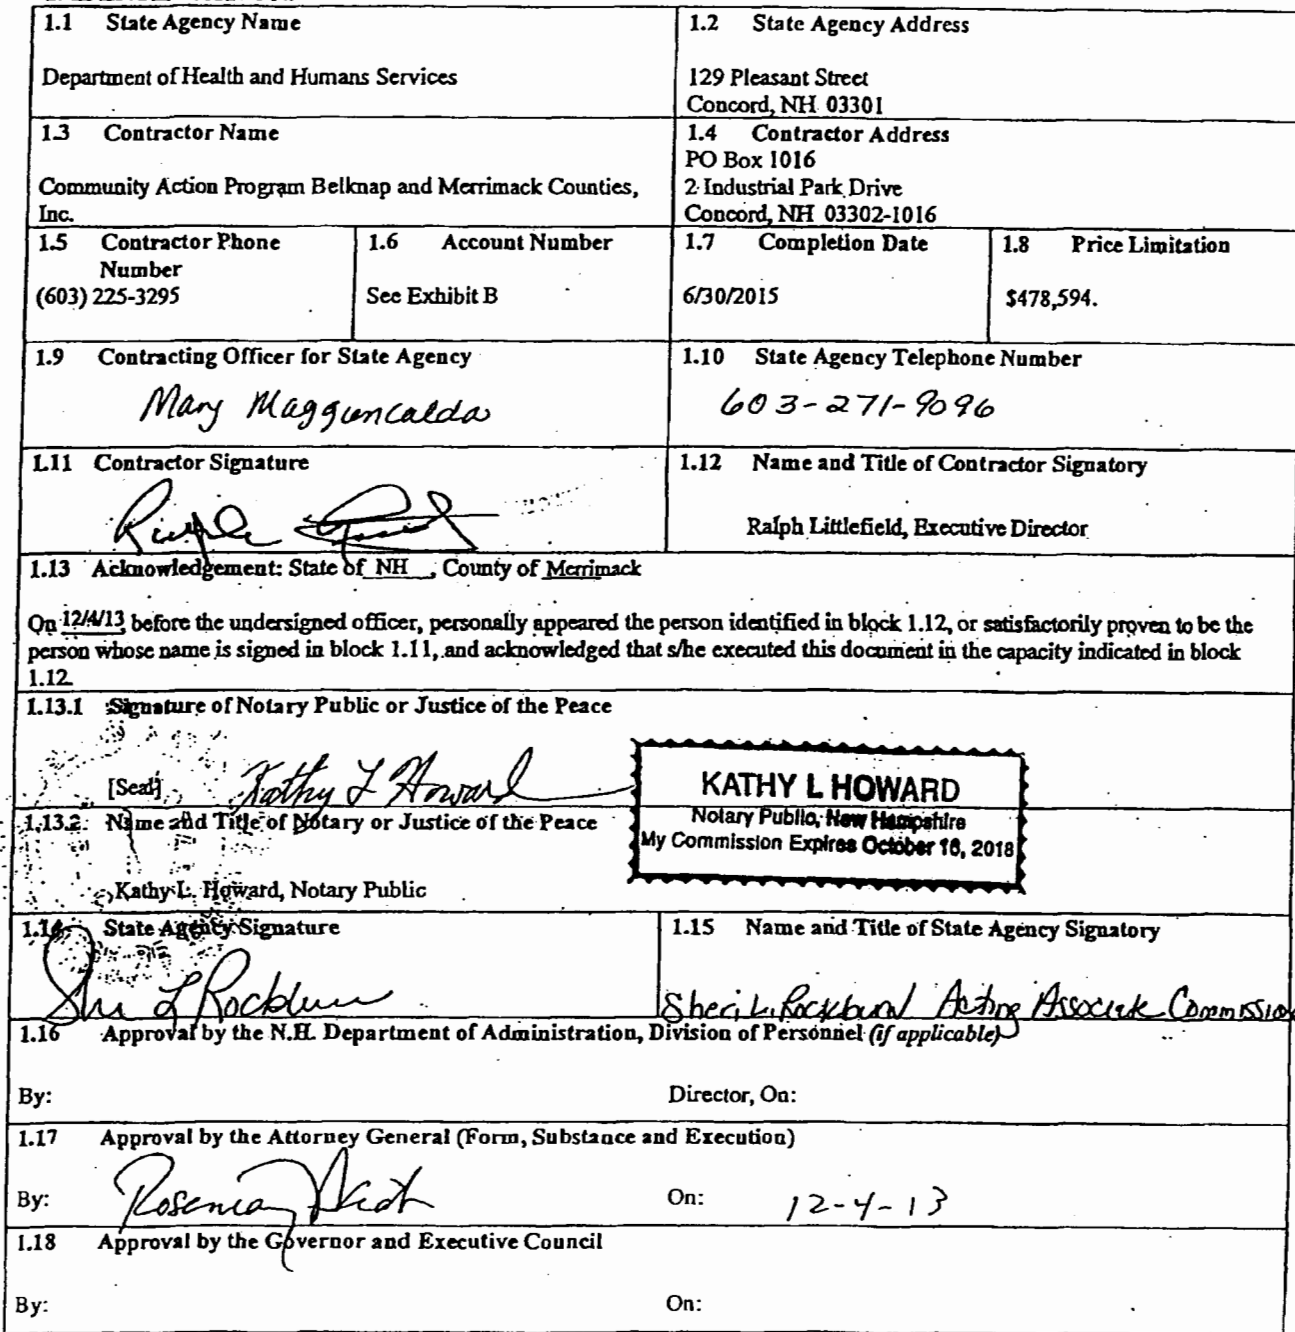 1.1 State Agency Name
Department of Health and Humans Services
1.2 State Agency Address
129 Pleasant Street
Concord, NH 03301
1.3 Contractor Name
Community Action Program Belknap and Merrimack Counties,
Inc.
1.4 Contractor Address
PO Box 1016
2 Industrial Park Drive
Concord, NH 03302-1016
1.5 Contractor Phone
Number
(603) 225-3295
1.6 Account Number
See Exhibit B
1.7 Completion Date
6/30/2015
1.8 Price Limitation
$478,594.
1.9 Contracting Officer for State Agency
Mary
1.10 State Agency Telephone Number
603-271-9096
1.11 Contractor Signature
1.12 Name and Title of Contractor Signatory
Ralph Littlefield, Executive Director
1.13 Acknowledgement: State of NH, County of Merrimack
On 12/4/13 before the undersigned officer, personally appeared the person identified in block 1.12, or satisfactorily proven to be the
person whose name is signed in block 1.11, and acknowledged that s/he executed this document in the capacity indicated in block
1.12.
1.13.1 Signature of Notary Public or Justice of the Peace
[Seal] Kathy L Howard
KATHY L HOWARD
Notary Public, New Hampshire
My Commission Expires October 16, 2018
1.13.2 Name and Title of Notary or Justice of the Peace
Kathy L. Howard, Notary Public
1.14 State Agency Signature
1.15 Name and Title of State Agency Signatory
Sheri L. Rockburn Acting Associate Commission
1.16 Approval by the N.H. Department of Administration, Division of Personnel (if applicable)
By: Director, On:
1.17 Approval by the Attorney General (Form, Substance and Execution)
By: On: 12-4-13
1.18 Approval by the Governor and Executive Council
By: On: